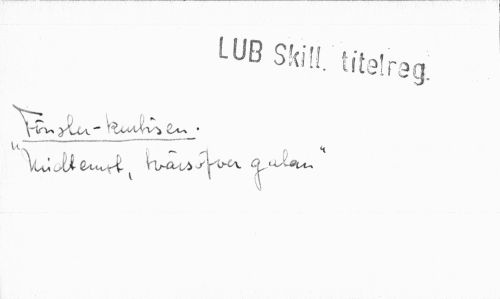 LUB Skill. titelreg.
Fönster-kurtisen.
"Midtemot, tvärsöfver gatan"